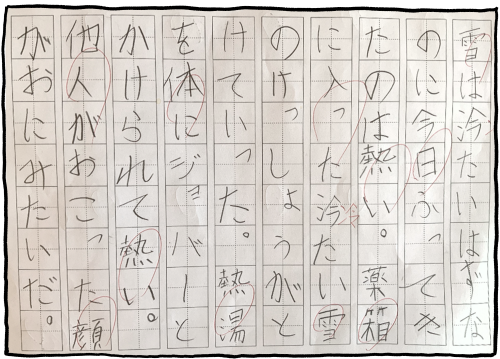 雪は冷たいはずな
のに今日ふってき
たのは熱い。薬箱
に入った冷たい雪
冷
のけっしょうがと
けていった。熱湯
を体にジョバーと
かけられて熱い。
他人がおこった顔
がおにみたいだ。